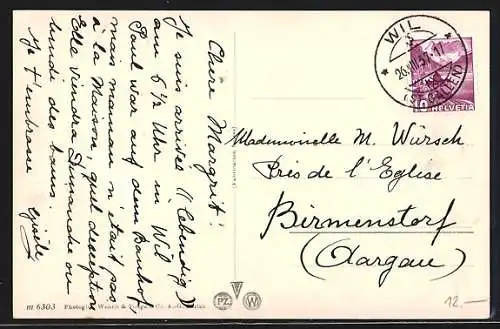 Chère Margrit!
Je suis arrivée (lebendig)
am 6 ½ Uhr in Wil
Paul war auf dem Bahnhof,
mais maman n'était pas
à la Maison, quel deception
Elle viendra Dimanche ou
lundi des bains.
Je t'embrasse Gisèle
WIL
26.VIII.37.-17
(ST. GALLEN)
10 HELVETIA
Mademoiselle M. Würsch
Près de l'Eglise
Birmenstorf
(Aargau)
12.-
m 6303 Photogl.
PZ W